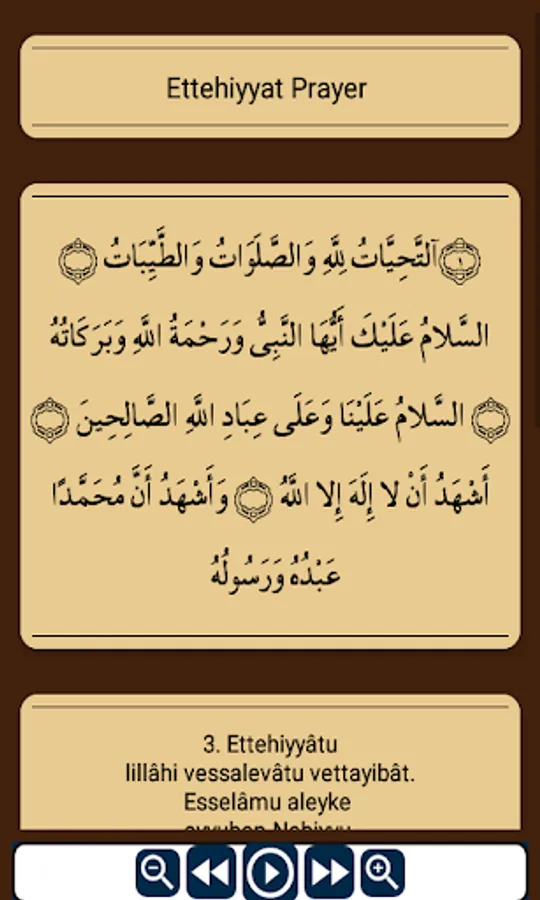 Ettehiyyat Prayer
١ اَلتَّحِيَّاتُ لِلَّهِ وَالصَّلَوَاتُ وَالطَّيِّبَاتُ
السَّلامُ عَلَيْكَ أَيُّهَا النَّبِىُّ وَرَحْمَةُ اللَّهِ وَبَرَكَاتُهُ
السَّلامُ عَلَيْنَا وَعَلَى عِبَادِ اللَّهِ الصَّالِحِينَ
أَشْهَدُ أَنْ لا إِلَهَ إِلا اللَّهُ وَأَشْهَدُ أَنَّ مُحَمَّدًا
عَبْدُهُ وَرَسُولُهُ
3. Ettehiyyâtu
lillâhi vessalevâtu vettayibât.
Esselâmu aleyke